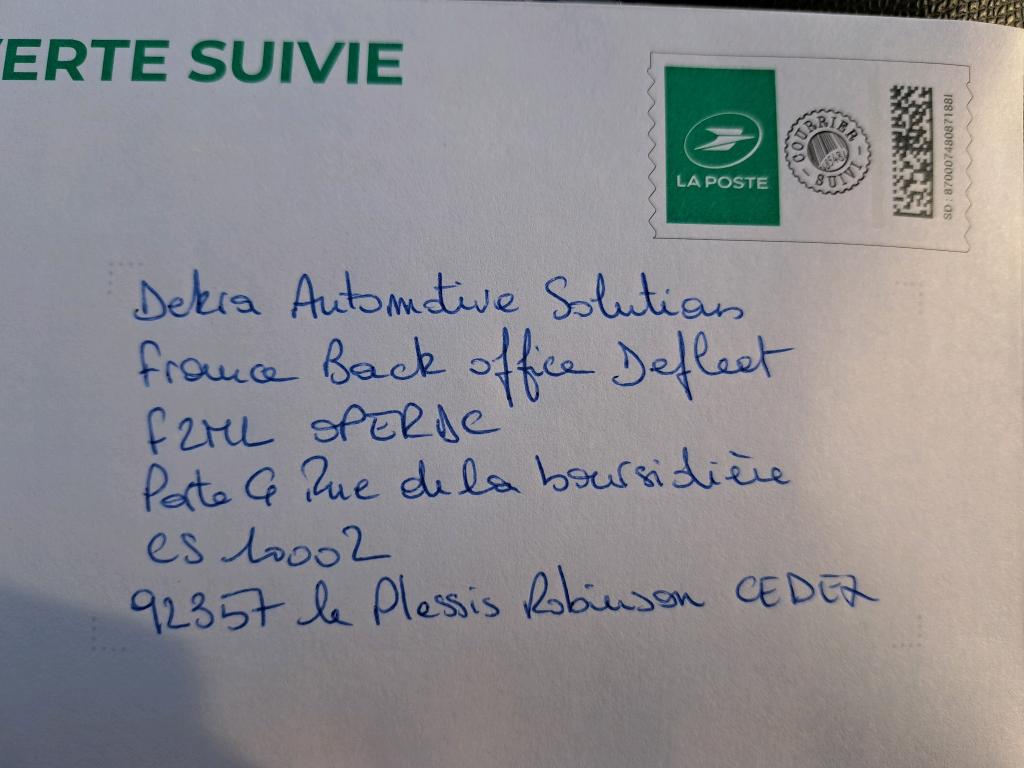 VERTE SUIVIE
LA POSTE
COURRIER
SUIVI
SD : 87000748087188I
Dekra Automotive Solutions
France Back office Defleet
F2ML OPERDC
Porte G Rue de la boursidière
CS 10002
92357 le Plessis Robinson CEDEX